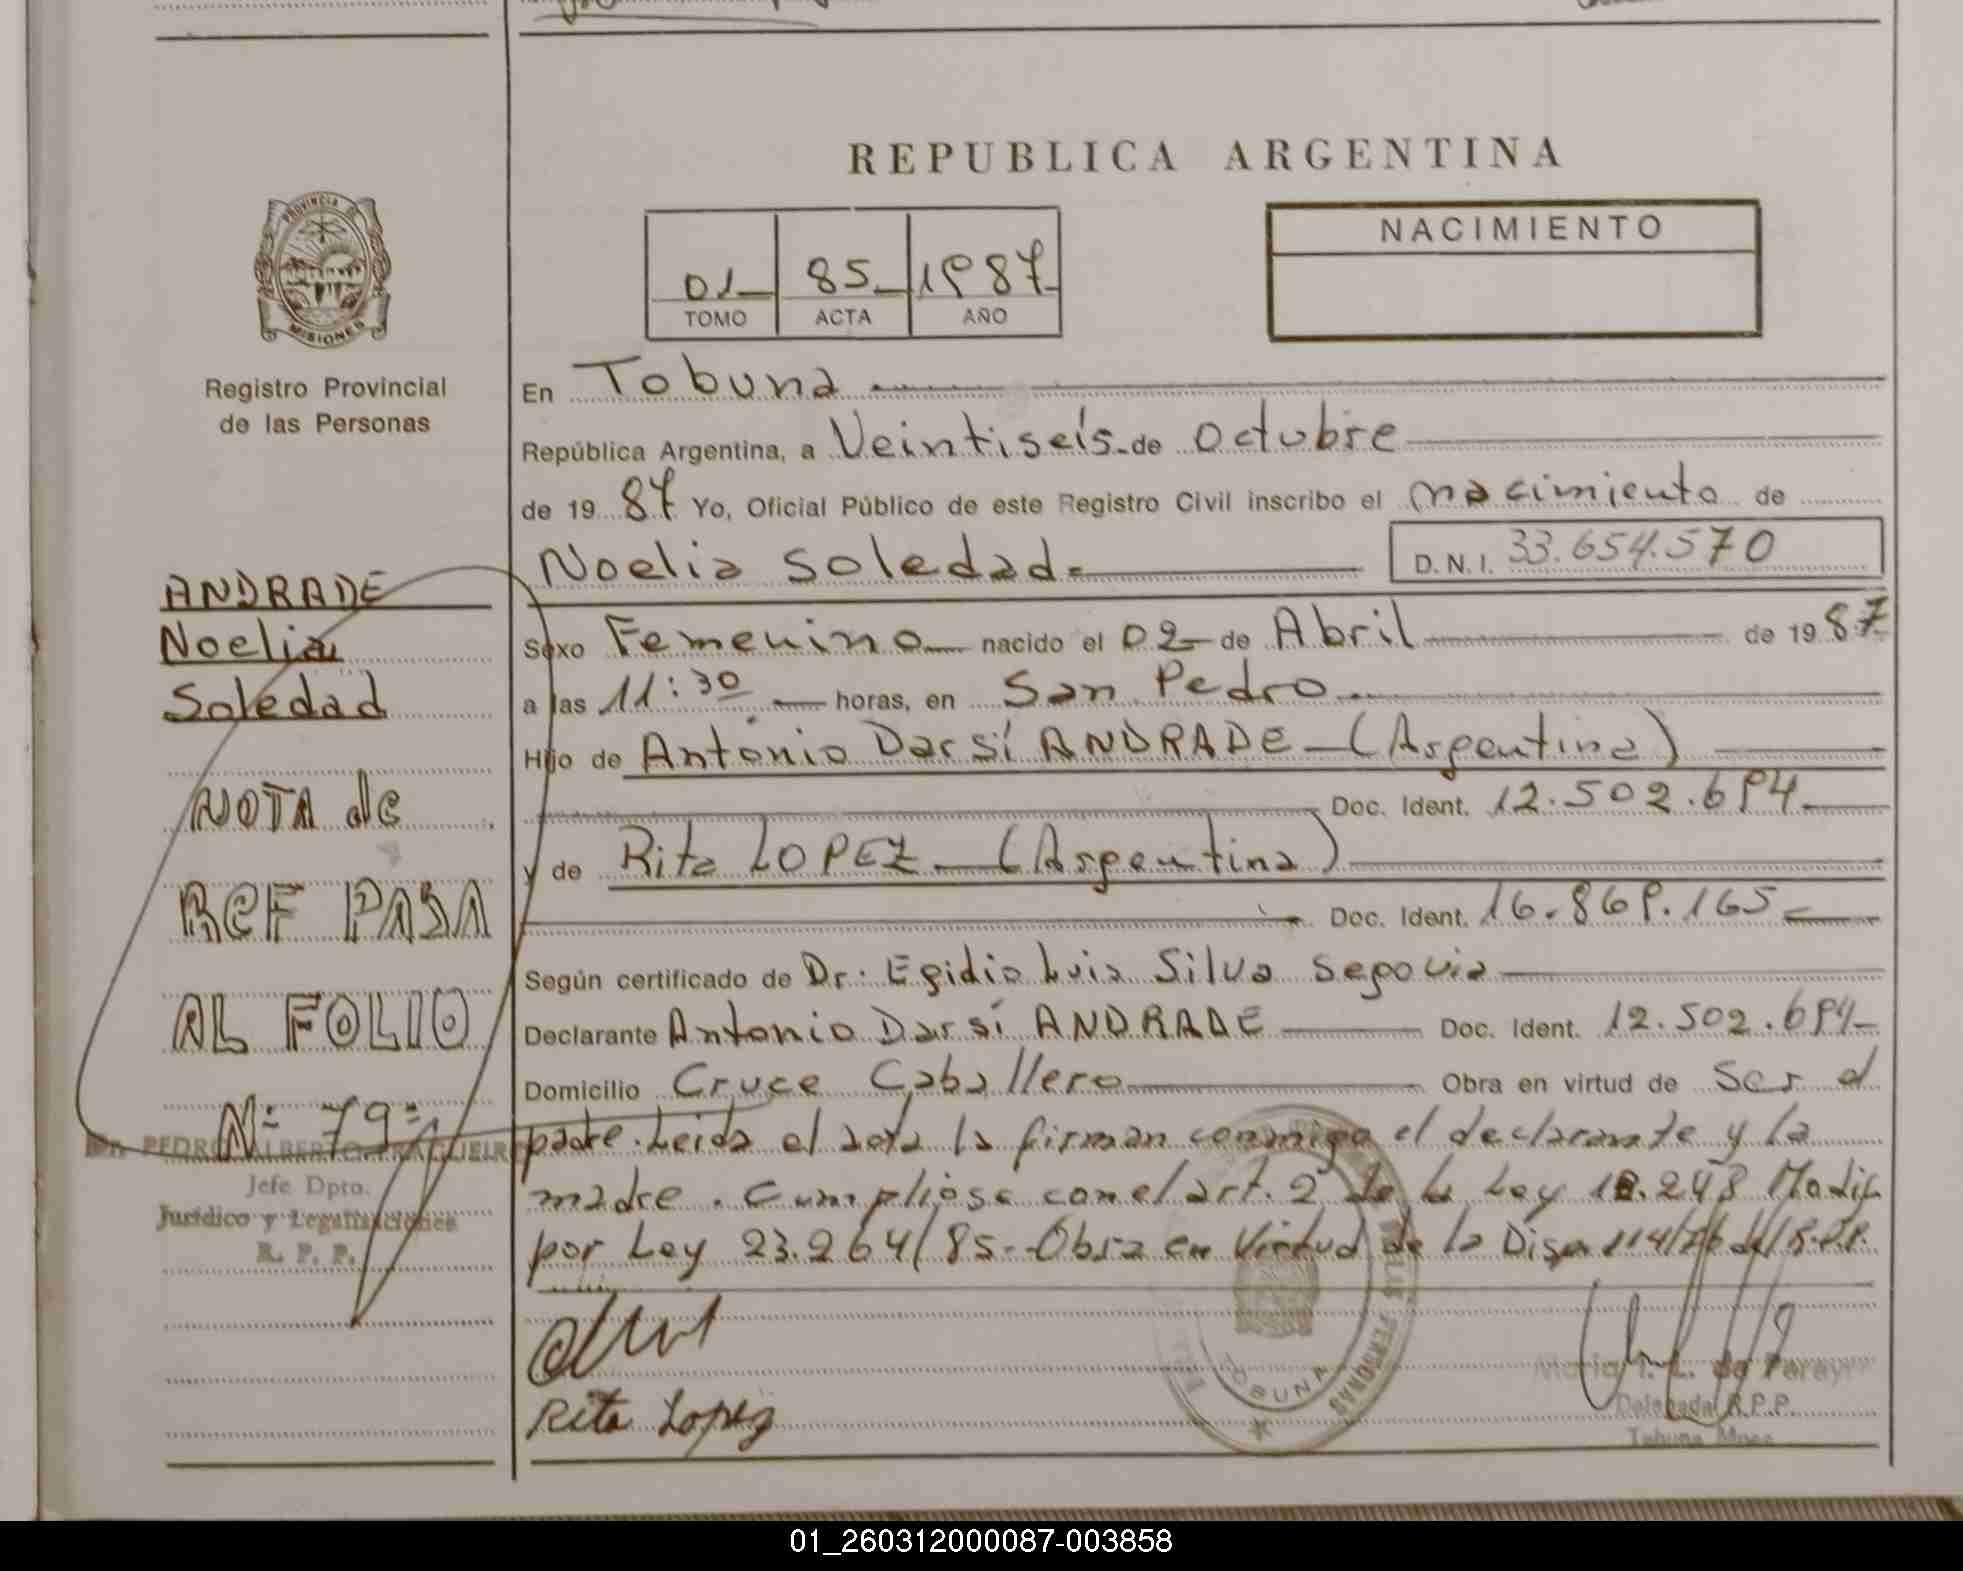 REPUBLICA ARGENTINA
PROVINCIA DE
MISIONES
Registro Provincial
de las Personas
NACIMIENTO
01 85 1987
TOMO ACTA AÑO
En Tobuna
República Argentina, a Veintiseís de Octubre
de 19 87 Yo, Oficial Público de este Registro Civil inscribo el nacimiento de
Noelia Soledad D.N.I. 33.654.570
Sexo Femenino nacido el 02 de Abril de 19 87
a las 11:30 horas, en San Pedro
Hijo de Antonio Darsí ANDRADE (Argentina)
Doc. Ident. 12.502.694
y de Rita LOPEZ (Argentina)
Doc. Ident. 16.869.165
Según certificado de Dr: Egidio Luis Silva Segovia
Declarante Antonio Darsí ANDRADE Doc. Ident. 12.502.694
Domicilio Cruce Caballero Obra en virtud de Ser el
padre. Leida el acta la firman conmigo el declarante y la
madre. Cumpliose con el art. 2 de la Ley 18.248 Modif
por Ley 23.264/85- Obra en Virtud de la Disp 114/86 del R.P.P.
Rita Lopez
TOBUNA
PERSONAS
Maria de Pereyra
Delegada R.P.P.
Tobuna Mnes
ANDRADE
Noelia
Soledad
NOTA de
REF PASA
AL FOLIO
Nº 79
PEDRO ALBERTO
Jefe Dpto.
Jurídico y Legalizaciones
R. P. P.
01_260312000087-003858